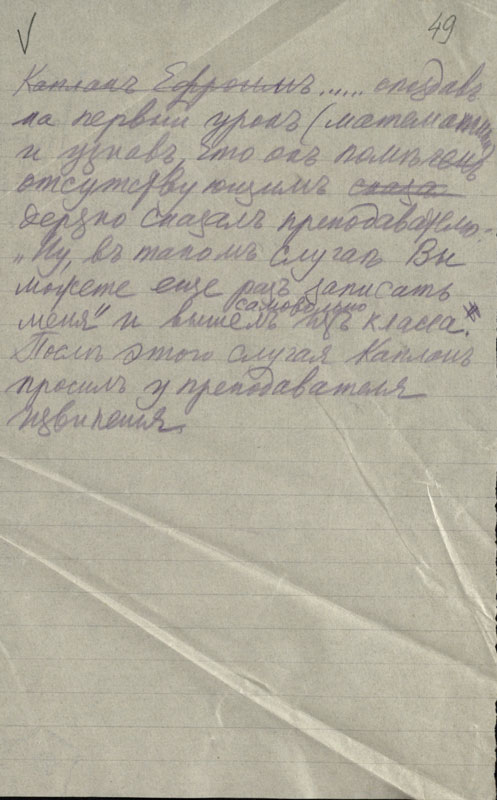 49
Капланъ Ефроимъ...... опоздавъ
на первый урокъ (математики)
и узнавъ, что онъ помѣченъ
отсутствующимъ сказа
дерзко сказалъ преподавателю:
„Ну, въ такомъ случаѣ Вы
можете еще разъ записать
самовольно
меня" и вышелъ изъ класса.
Послѣ этого случая Капланъ
просилъ у преподавателя
извиненія